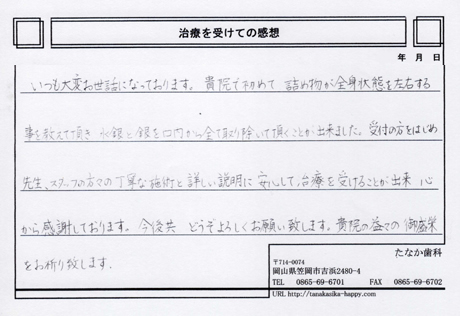 治療を受けての感想
年 月 日
いつも大変お世話になっております。貴院で初めて 詰め物が全身状態を左右する
事を教えて頂き 水銀と銀を口内から全て取り除いて頂くことが出来ました。受付の方をはじめ
先生、スタッフの方々の丁寧な施術と詳しい説明に 安心して、治療を受けることが出来 心
から感謝しております。今後共 どうぞよろしくお願い致します。貴院の益々の御盛栄
をお祈り致します.
たなか歯科
〒714-0074
岡山県笠岡市吉浜2480-4
TEL 0865-69-6701 FAX 0865-69-6702
URL http://tanakasika-happy.com/